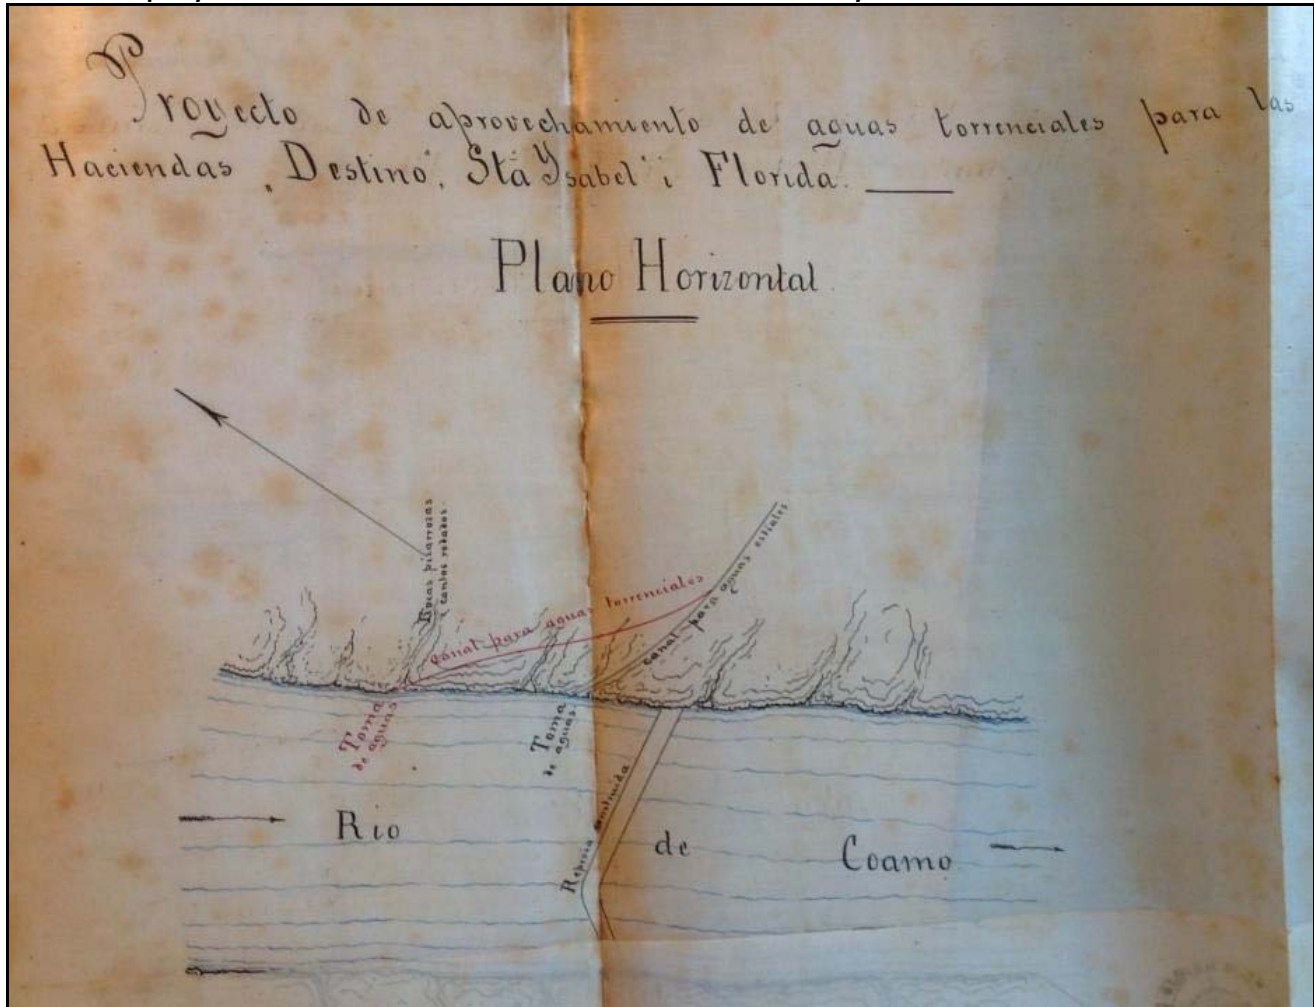 Proyecto de aprovechamiento de aguas torrenciales para las
Haciendas "Destino", Sta Ysabel i Florida.
Plano Horizontal
Rocas pizarrozas
i cantos rodados.
Canal para aguas torrenciales
Canal para aguas estiales
Toma
de aguas
Toma
de aguas
Represa construida
Rio de Coamo